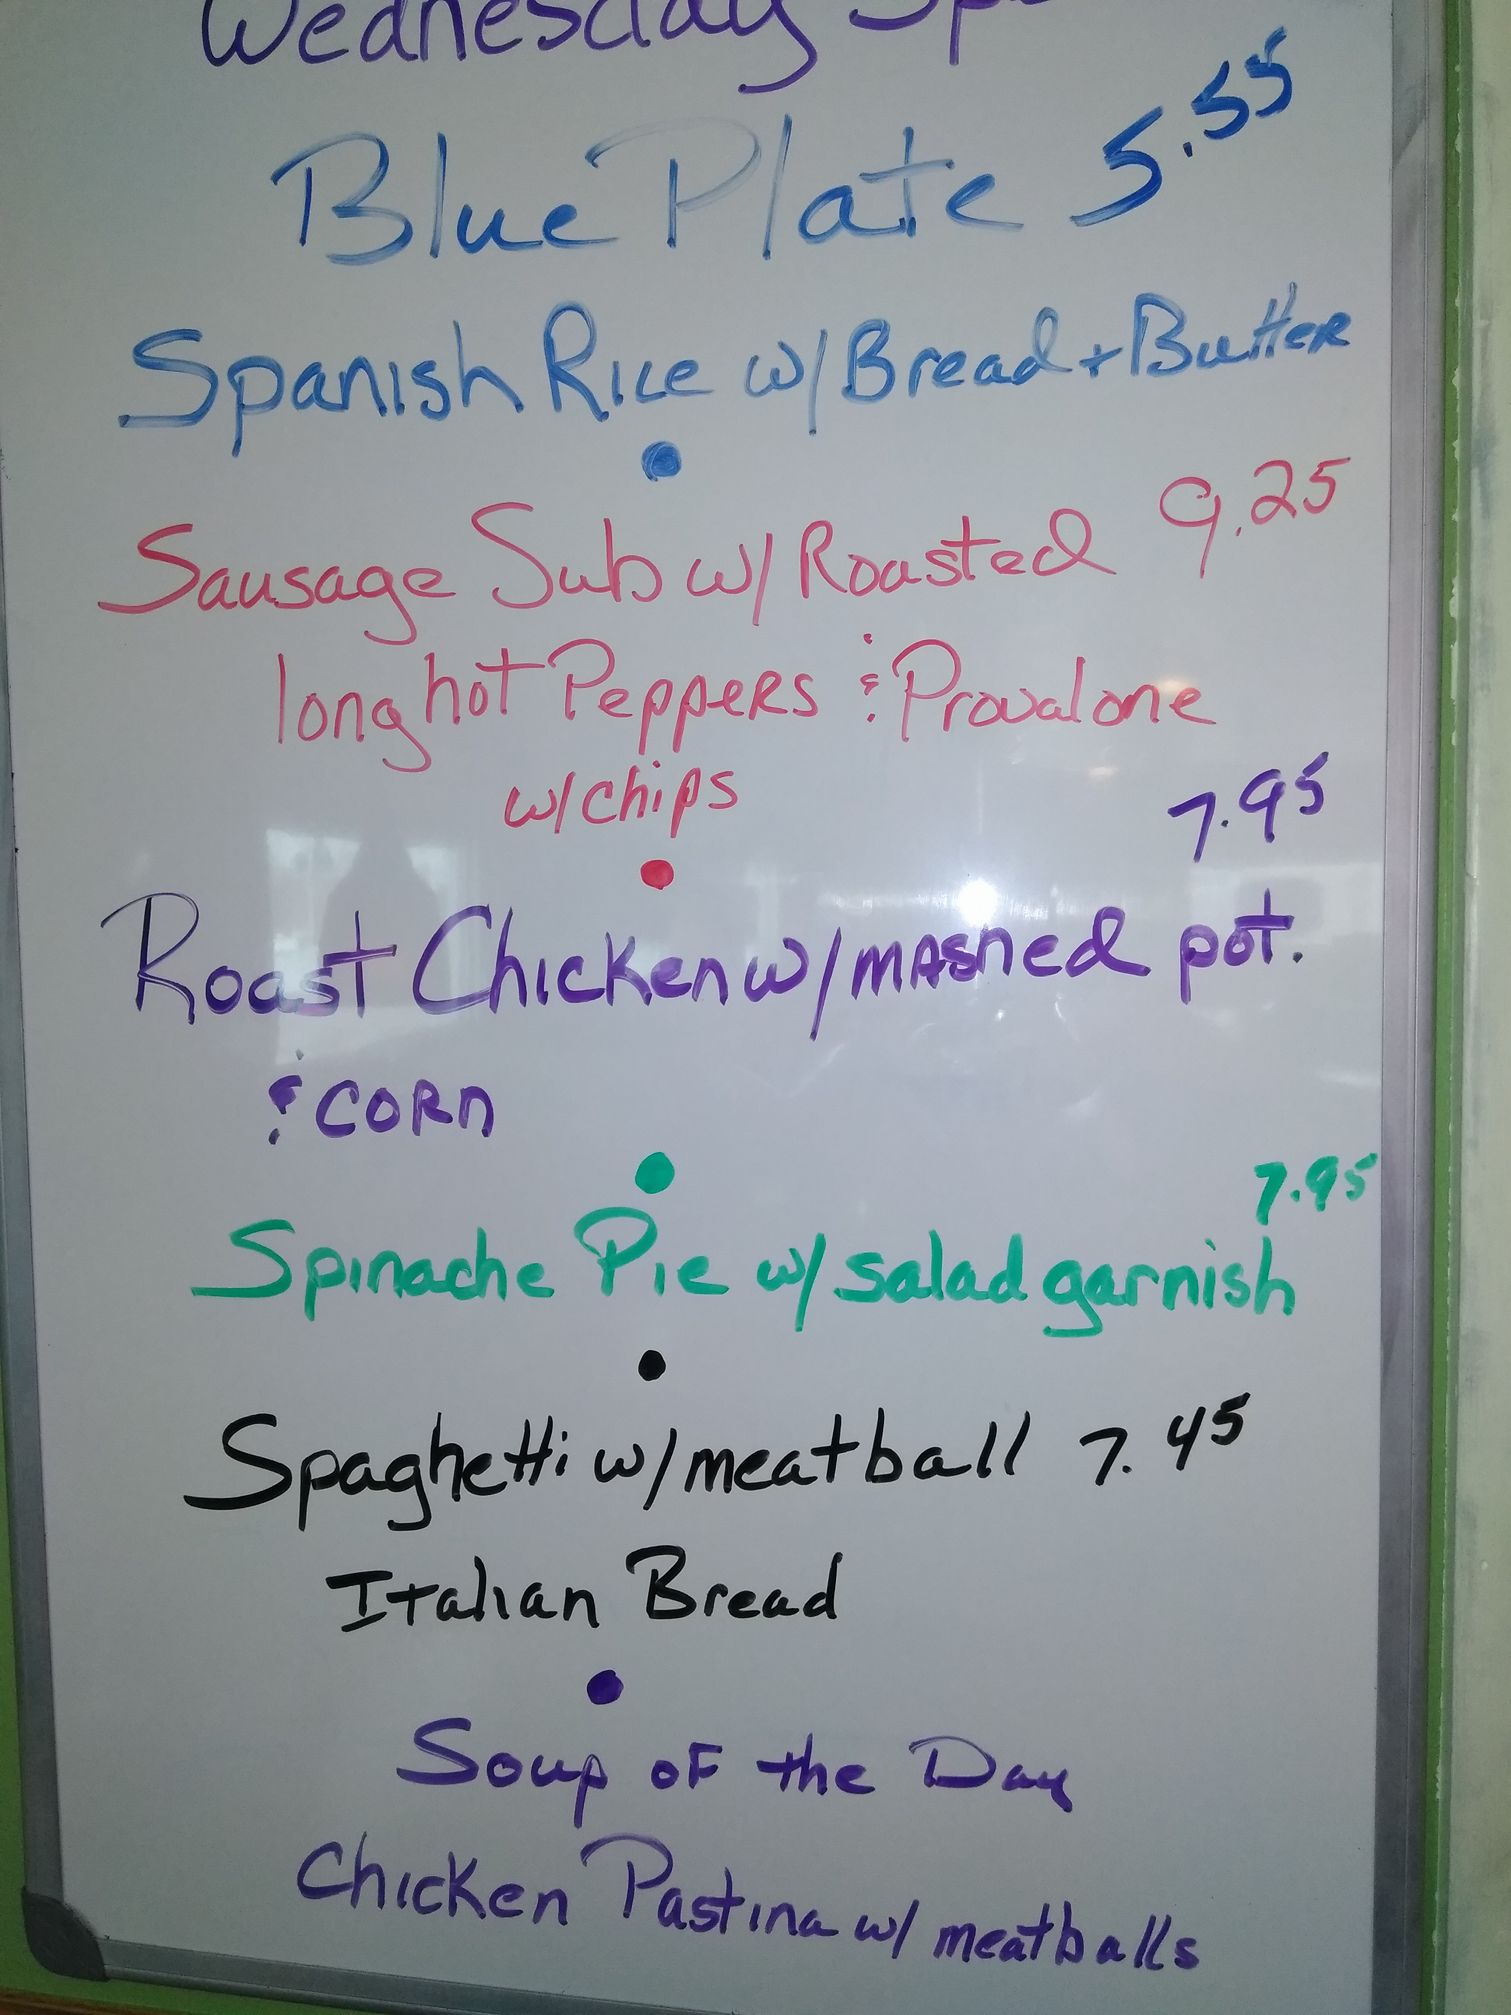 Wednesday Sp
Blue Plate 5.55
Spanish Rice w/ Bread + Butter
Sausage Sub w/ Roasted 9.25
long hot Peppers & Provalone
w/chips
7.95
Roast Chicken w/ mashed pot.
& corn
7.95
Spinache Pie w/ salad garnish
Spaghetti w/ meatball 7.45
Italian Bread
Soup of the Day
Chicken Pastina w/ meatballs